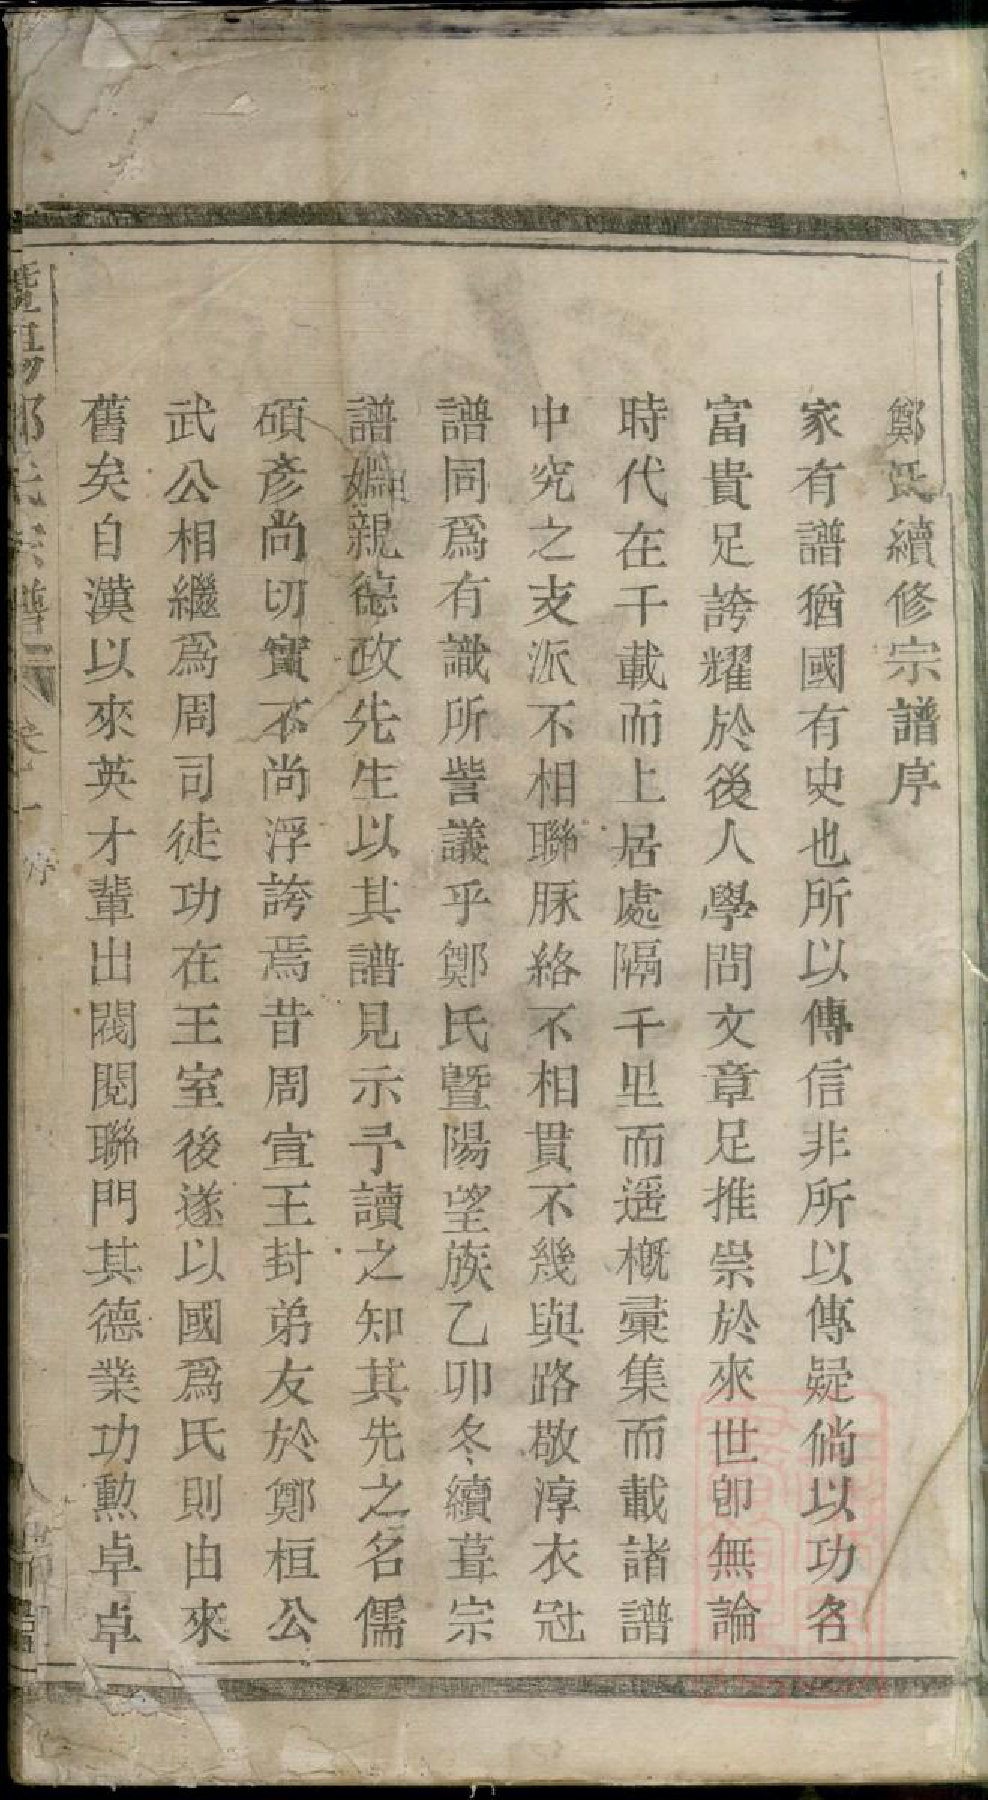 鄭氏續修宗譜序
家有譜猶國有史也所以傳信非所以傳疑倘以功名
富貴足誇耀於後人學問文章足推崇於來世卽無論
時代在千載而上居處隔千里而遥槪彙集而載諸譜
中究之支派不相聯脉絡不相貫不幾與路敬淳衣冠
譜同爲有識所訾議乎鄭氏曁陽望族乙卯冬續葺宗
譜姻親德政先生以其譜見示予讀之知其先之名儒
碩彥尚切實不尚浮誇焉昔周宣王封弟友於鄭桓公
武公相繼爲周司徒功在王室後遂以國爲氏則由來
舊矣自漢以來英才輩出閥閱聯門其德業功勲卓卓
曁陽鄭氏宗譜 卷一 序